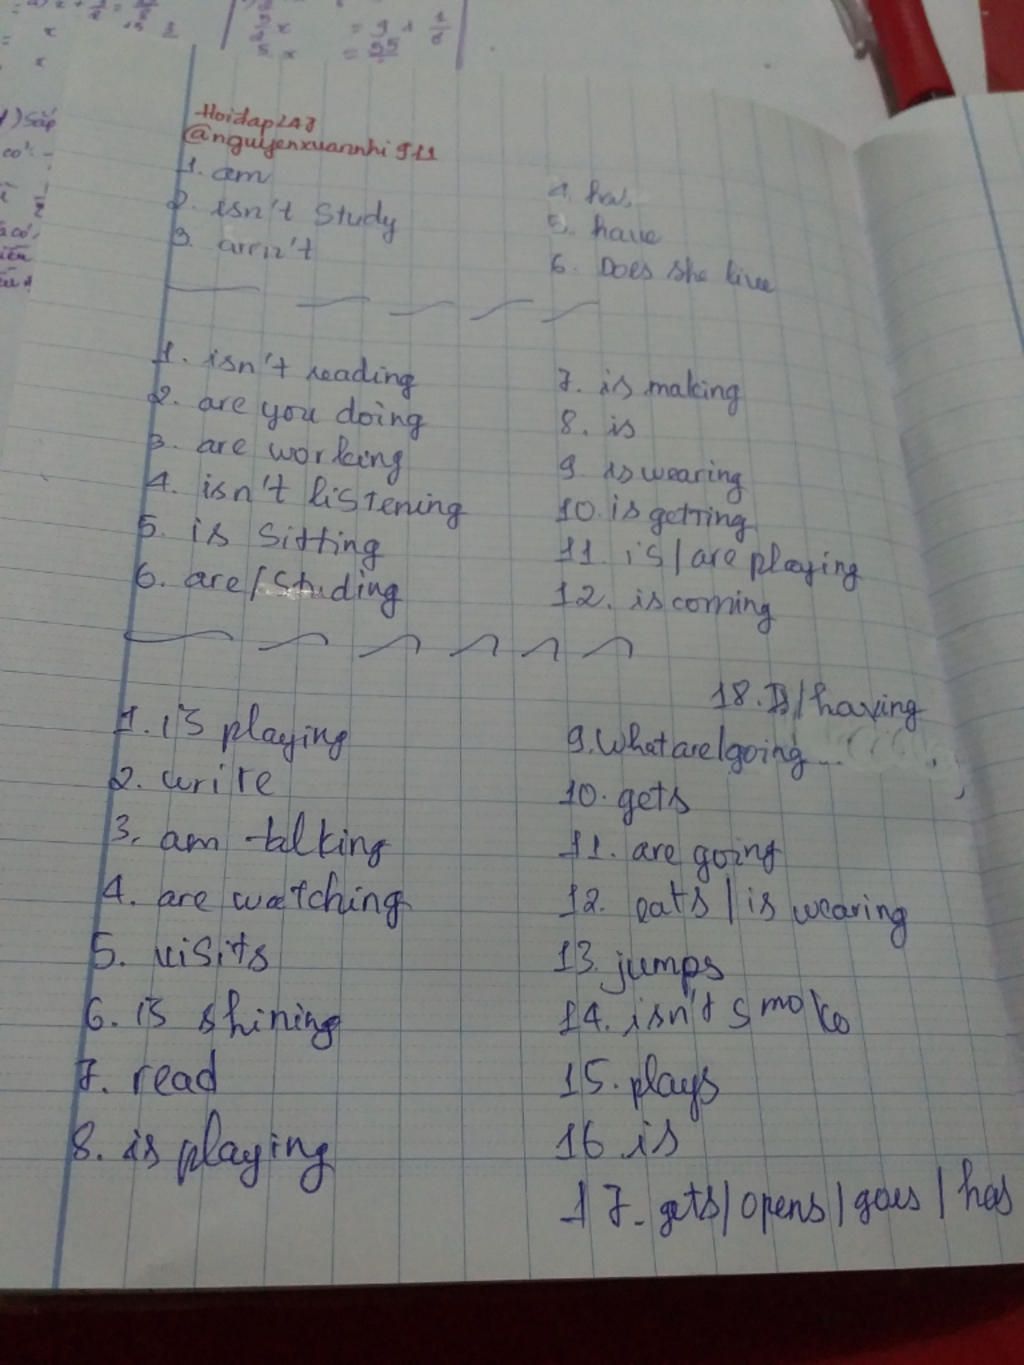 Hoidap247
@nguyenxuannhi911
1. am
2. isn't study
3. aren't
4. has
5. have
6. Does she live
1. isn't reading
2. are you doing
3. are working
4. isn't listening
5. is sitting
6. are/studing
7. is making
8. is
9 is wearing
10. is getting
11. is/are playing
12. is coming
1. is playing
2. write
3. am talking
4. are watching
5. visits
6. is shining
7. read
8. is playing
18. Is/having
9. What are/going...
10. gets
11. are going
12. eats / is wearing
13. jumps
14. isn't smoke
15. plays
16 is
17. gets/opens/goes/has